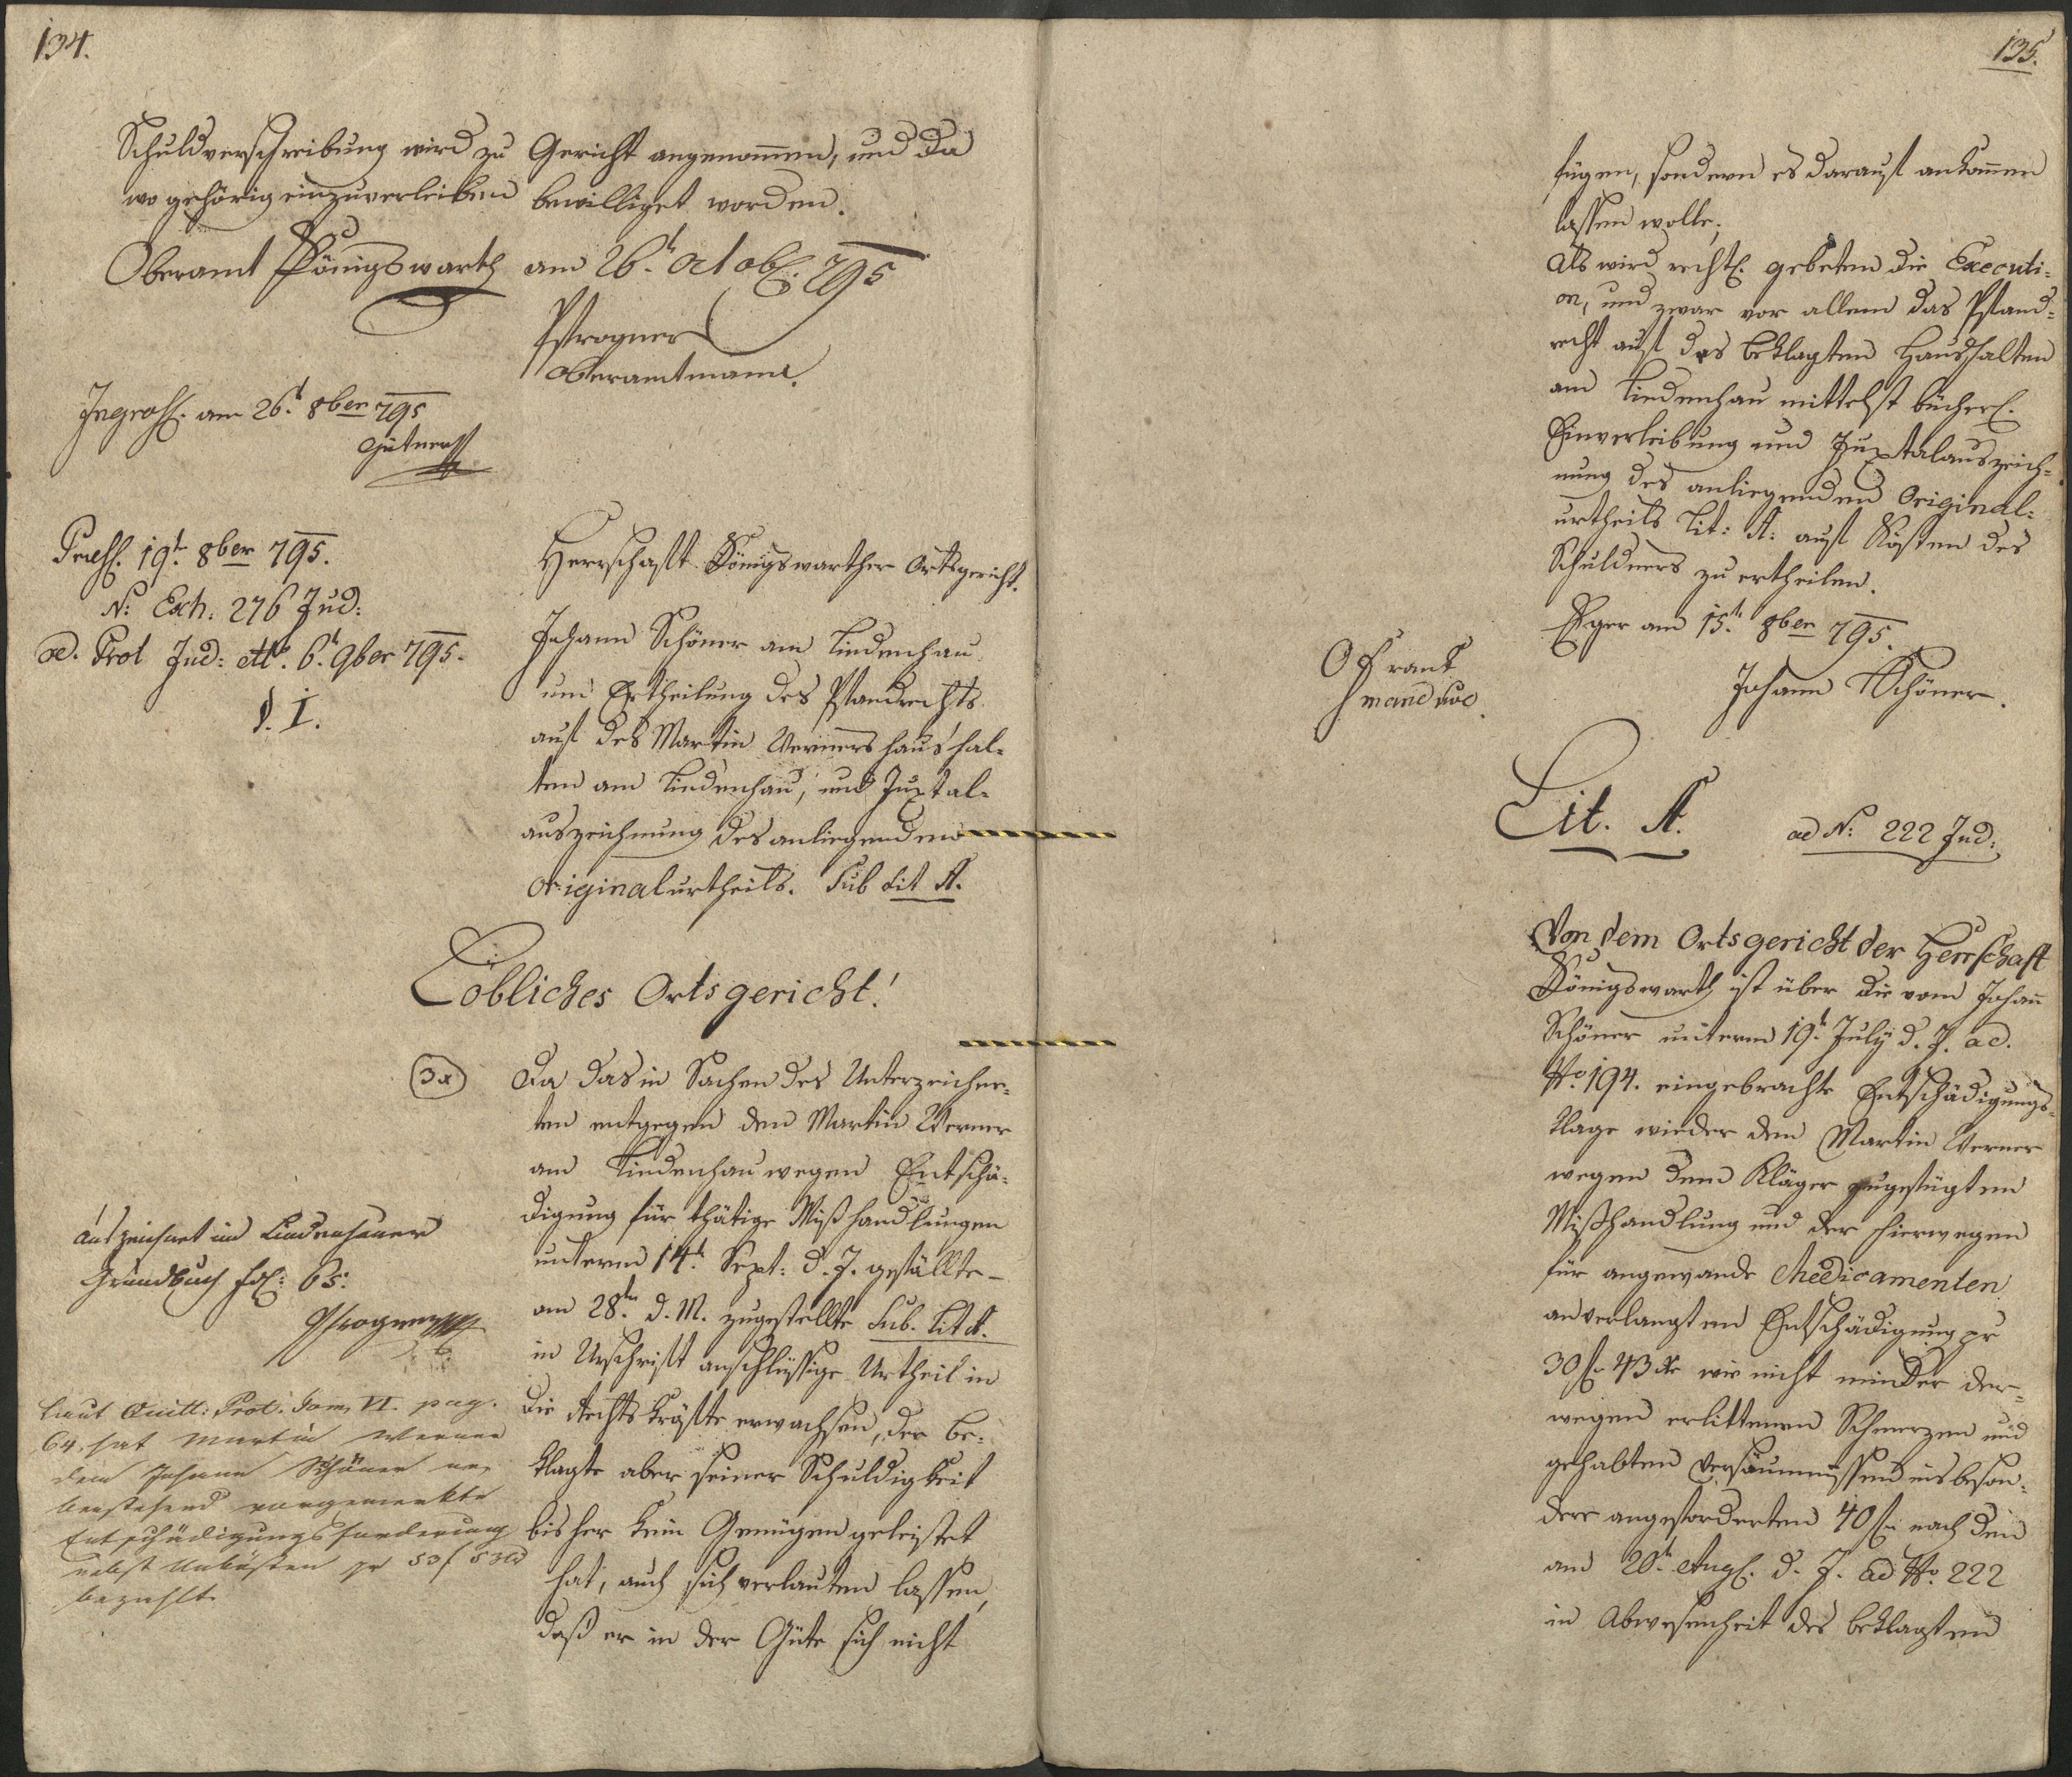 134.
Schuldverschreibung wird zu Gericht angenom̄en, und da
wo gehörig einzuverleiben bewilliget worden.
Oberamt Königswarth am 26t. Octob. 795
Pfrogner
Oberamtmann.
Ingross. am 26t. 8ber 795
Gütner
Praess. 19t. 8ber 795.
N: Exh: 276 Jud:
ad. Prot Jud: dto. 6t. 9ber 795.
§. I.
Herrschaft Königswarther Ortsgericht.
Johann Schöner am Lindenhau
um Ertheilung des Pfandrechts
auf des Martin Werners Haushal-
ten am Lindenhau, und Juxtal-
auszeichnung des anliegenden
Originalurtheils. Sub Lit A.
Löbliches Ortsgericht!
3x
Da das in Sachen des Unterzeichne-
ten entgegen den Martin Werner
am Lindenhau wegen Entschä-
digung für thätige Mißhandlungen
unterm 14t. Sept: d. J. gefällte -
am 28ten d. M. zugestellte Sub. Lit A.
in Urschrift anschlüssige Urtheil in
die Rechtskräfte erwachsen, der Be-
klagte aber seiner Schuldigkeit
bisher kein Genügen geleistet
hat, auch sich verlauten lassen,
daß er in der Güte sich nicht
auszeichnet im Lindenhauer
Grundbuch fol: 65:
Pfrogner
Laut Quitt: Prot. Tom. VI. pag.
64. hat Martin Werner
dem Johann Schöner ne-
benstehend vorgemerkte
Entschädigungsforderung
nebst Unkösten pr 53 f 53
bezahlt
135.
fügen, sondern es darauf ankom̄en
lassen wolle;
Als wird rechtl. gebeten die Executi-
on, und zwar vor allem das Pfand-
recht auf des Beklagten Haushalten
am Lindenhau mittelst bücherl.
Einverleibung und Juxtalauszeich-
nung des anliegenden Original-
urtheils Lit: A: auf Kösten des
Schuldners zu ertheilen.
Eger am 15t. 8ber 795.
Johann Schöner.
Lit. A. ad N: 222 Jud:
Von dem Ortsgericht der Herrschaft
Königswarth ist über die vom Johan̄
Schöner unterm 19t. July d. J. ad.
No. 194. eingebrachte Entschädigungs-
klage wieder den Martin Werner
wegen dem Kläger zugefügten
Mißhandlung und der hierwegen
für angewande Medicamenten
anverlangten Entschädigung pr
30 f 43 xr wie nicht minder der-
wegen erlittenen Schmerzen und
gehabten Versäumnissen insbeson-
dere angeforderten 40 f nach dem
am 20t. Aug. d. J. ad No. 222
in Abwesenheit des Beklagten